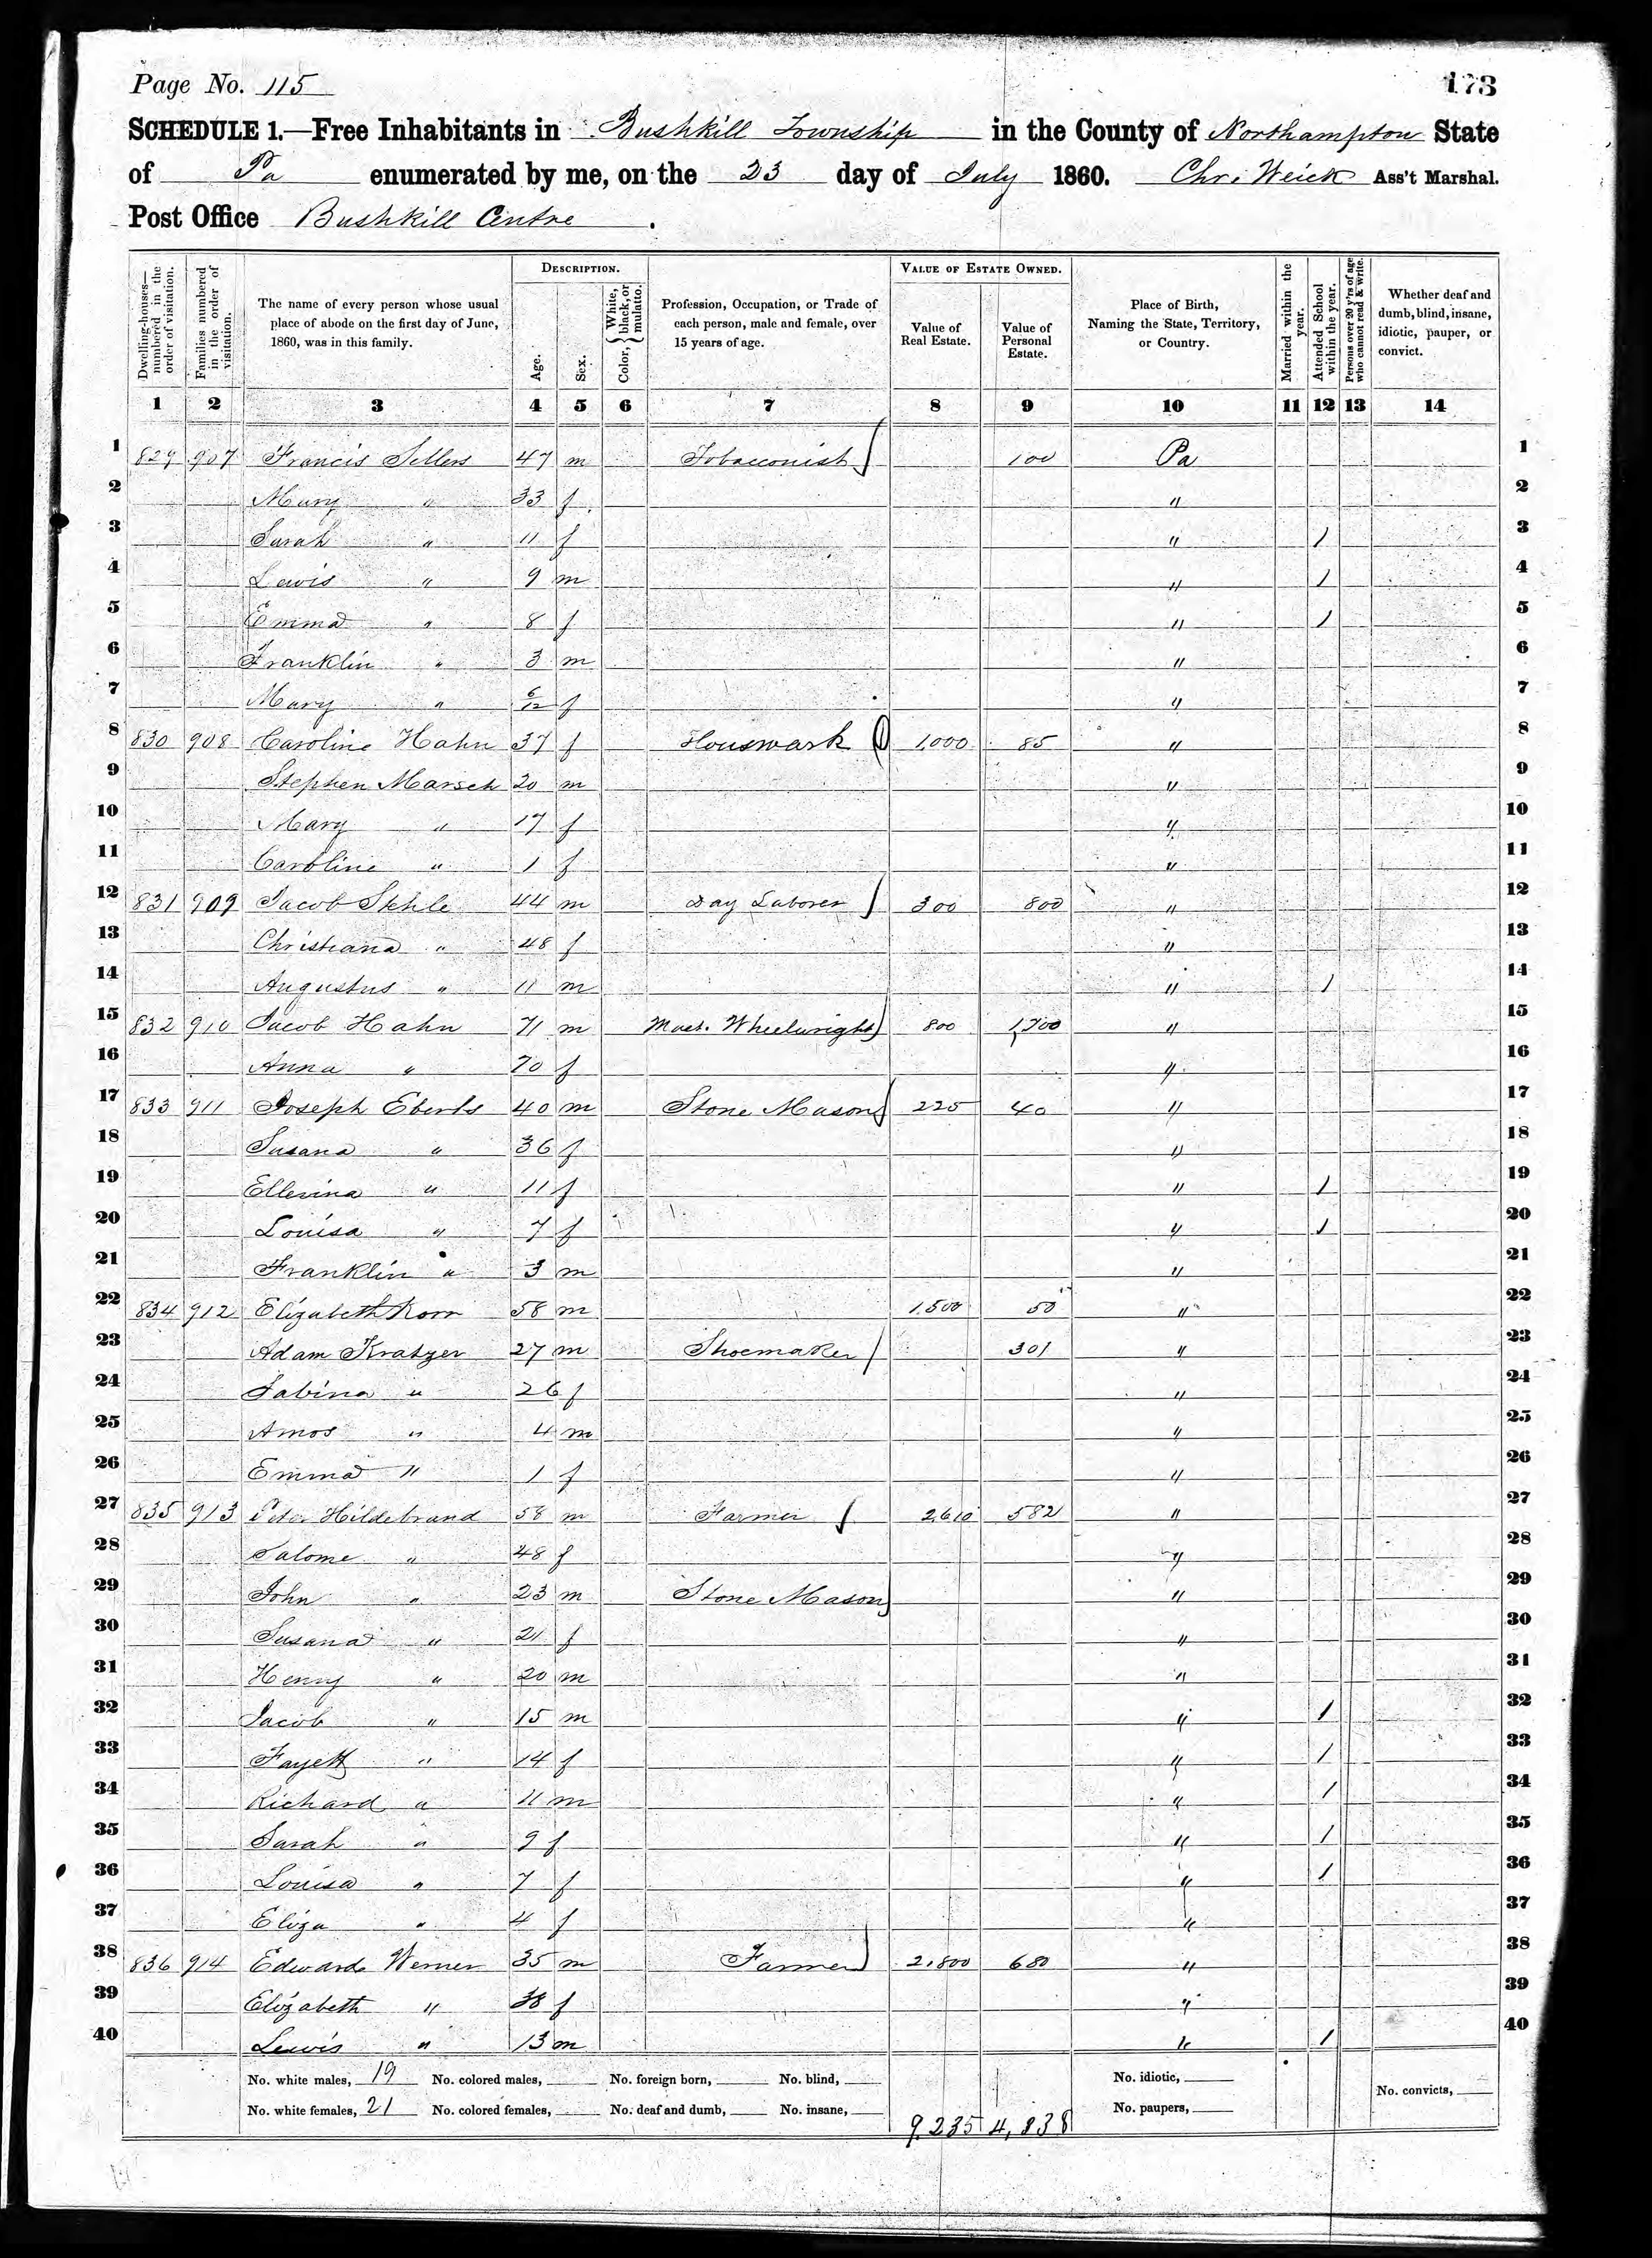 Page No. 115
173
SCHEDULE 1.—Free Inhabitants in Bushkill Township in the County of Northampton State
of Pa enumerated by me, on the 23 day of July 1860. Chr. Weick Ass't Marshal.
Post Office Bushkill Centre.
Dwelling-houses—numbered in the order of visitation.
Families numbered in the order of visitation.
The name of every person whose usual place of abode on the first day of June, 1860, was in this family.
DESCRIPTION.
Age.
Sex.
Color, { White, black, or mulatto.
Profession, Occupation, or Trade of each person, male and female, over 15 years of age.
VALUE OF ESTATE OWNED.
Value of Real Estate.
Value of Personal Estate.
Place of Birth, Naming the State, Territory, or Country.
Married within the year.
Attended School within the year.
Persons over 20 y'rs of age who cannot read & write.
Whether deaf and dumb, blind, insane, idiotic, pauper, or convict.
1 2 3 4 5 6 7 8 9 10 11 12 13 14
1 829 907 Francis Sellers 47 m Tobacconist 100 Pa 1
2 Mary " 33 f " 2
3 Sarah " 11 f " / 3
4 Lewis " 9 m " / 4
5 Emma " 8 f " / 5
6 Franklin " 3 m " 6
7 Mary " 6/12 f " 7
8 830 908 Caroline Hahn 37 f Houswark 1,000 85 " 8
9 Stephen Marsch 20 m " 9
10 Mary " 17 f " 10
11 Caroline " 1 f " 11
12 831 909 Jacob 44 m Day Laborer 300 800 " 12
13 Christiana " 48 f " 13
14 Augustus " 11 m " / 14
15 832 910 Jacob Hahn 71 m Mast. Wheelwright 800 1,700 " 15
16 Anna " 70 f " 16
17 833 911 Joseph Eberts 40 m Stone Mason 225 40 " 17
18 Susana " 36 f " 18
19 Ellevina " 11 f " / 19
20 Louisa " 7 f " / 20
21 Franklin " 3 m " 21
22 834 912 Elizabeth Korr 58 m 1,500 50 " 22
23 Adam Kratzer 27 m Shoemaker 301 " 23
24 Sabina " 26 f " 24
25 Amos " 4 m " 25
26 Emma " 1 f " 26
27 835 913 Peter Hildebrand 58 m Farmer 2,610 582 " 27
28 Salome " 48 f " 28
29 John " 23 m Stone Mason " 29
30 Susana " 21 f " 30
31 Henry " 20 m " 31
32 Jacob " 15 m " / 32
33 Fayett " 14 f " / 33
34 Richard " 11 m " / 34
35 Sarah " 9 f " / 35
36 Louisa " 7 f " / 36
37 Eliza " 4 f " 37
38 836 914 Edward Werner 35 m Farmer 2,800 680 " 38
39 Elizabeth " 38 f " 39
40 Lewis " 13 m " / 40
No. white males, 19 No. colored males, No. foreign born, No. blind, No. idiotic,
No. convicts,
No. white females, 21 No. colored females, No. deaf and dumb, No. insane, No. paupers,
9,235 4,838